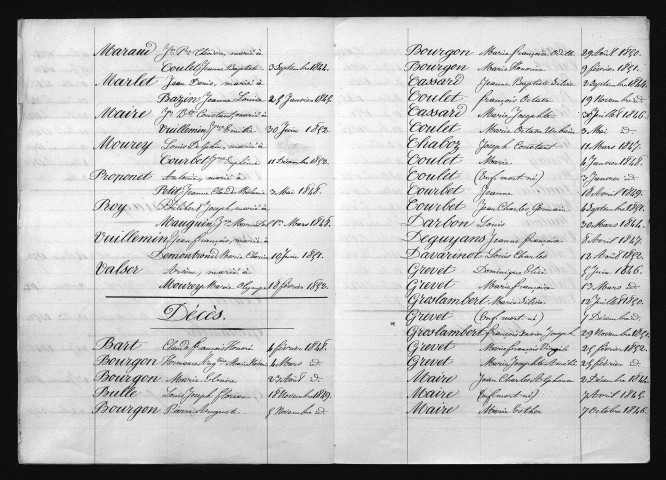 Maraud J.n P.re Isidore, marié à
Coulet Jeanne Baptiste 3 Septembre 1844.
Marlet Jean Denis, marié à
Bazin Jeanne Louise 25 Janvier 1845.
Maire J.n B.te Constant, marié à
Vuillemin J.ne Emilie 30 Juin 1852.
Mourey Louis Delphin, marié à
Courbet J.ne Delphine 11 Décembre 1852.
Proponet Antoine, marié à
Petit Jeanne Claude 3 Mai 1848.
Roy Philibert Joseph, marié à
Mauguin 1er Mars 1848.
Vuillemin Jean François, marié à
Demontrond Marie 10 Juin 1851.
Valser Arsène, marié à
Mourey Marie Olympe 18 février 1852.
Décès.
Bart Claude François Honoré 4 février 1848.
Bourgon Hermance 4 Mars id.
Bourgon Marie 23 Août id.
Bulle Louis Joseph Florian 18 Novembre 1849.
Bourgon Pierre Auguste 8 Novembre id.
Bourgon Marie Françoise Odille 29 Août 1850.
Bourgon Marie Honorine 9 février 1851.
Cassard Jeanne Baptiste Délie 2 Septembre 1844.
Coulet François Octave 19 Novembre id.
Cassard Marie Josephte Juillet 1846.
Coulet Marie Octavie 3 Mai id.
Chaboz Joseph Constant 11 Mars 1847.
Coulet Marie 4 Janvier 1848.
Coulet (Enf. mort né) 3 Janvier id.
Courbet Jeanne 18 Avril 1849.
Courbet Jean Charles Germain 4 Septembre 1851.
Darbon Louis Mars 1844.
Déguyans Jeanne Françoise 8 Avril 1847.
Davarinot Louis Charles 12 Août 1852.
Grevet Dominique Elie 5 Juin 1846.
Grevet Marie Françoise 13 Mars id.
Groslambert Marie Délie 12 Juillet 1850.
Grevet (Enf. mort né) 7 Décembre id.
Groslambert François Xavier Joseph 29 Novembre 1851.
Grevet Marie Françoise Virginie 25 février 1852.
Grevet Marie Josephte Amélie 25 février id.
Maire Jean Charles Alphonse 2 Décembre 1844.
Maire (Enf. mort né) 7 Avril 1845.
Maire Marie Esther 7 Octobre 1846.